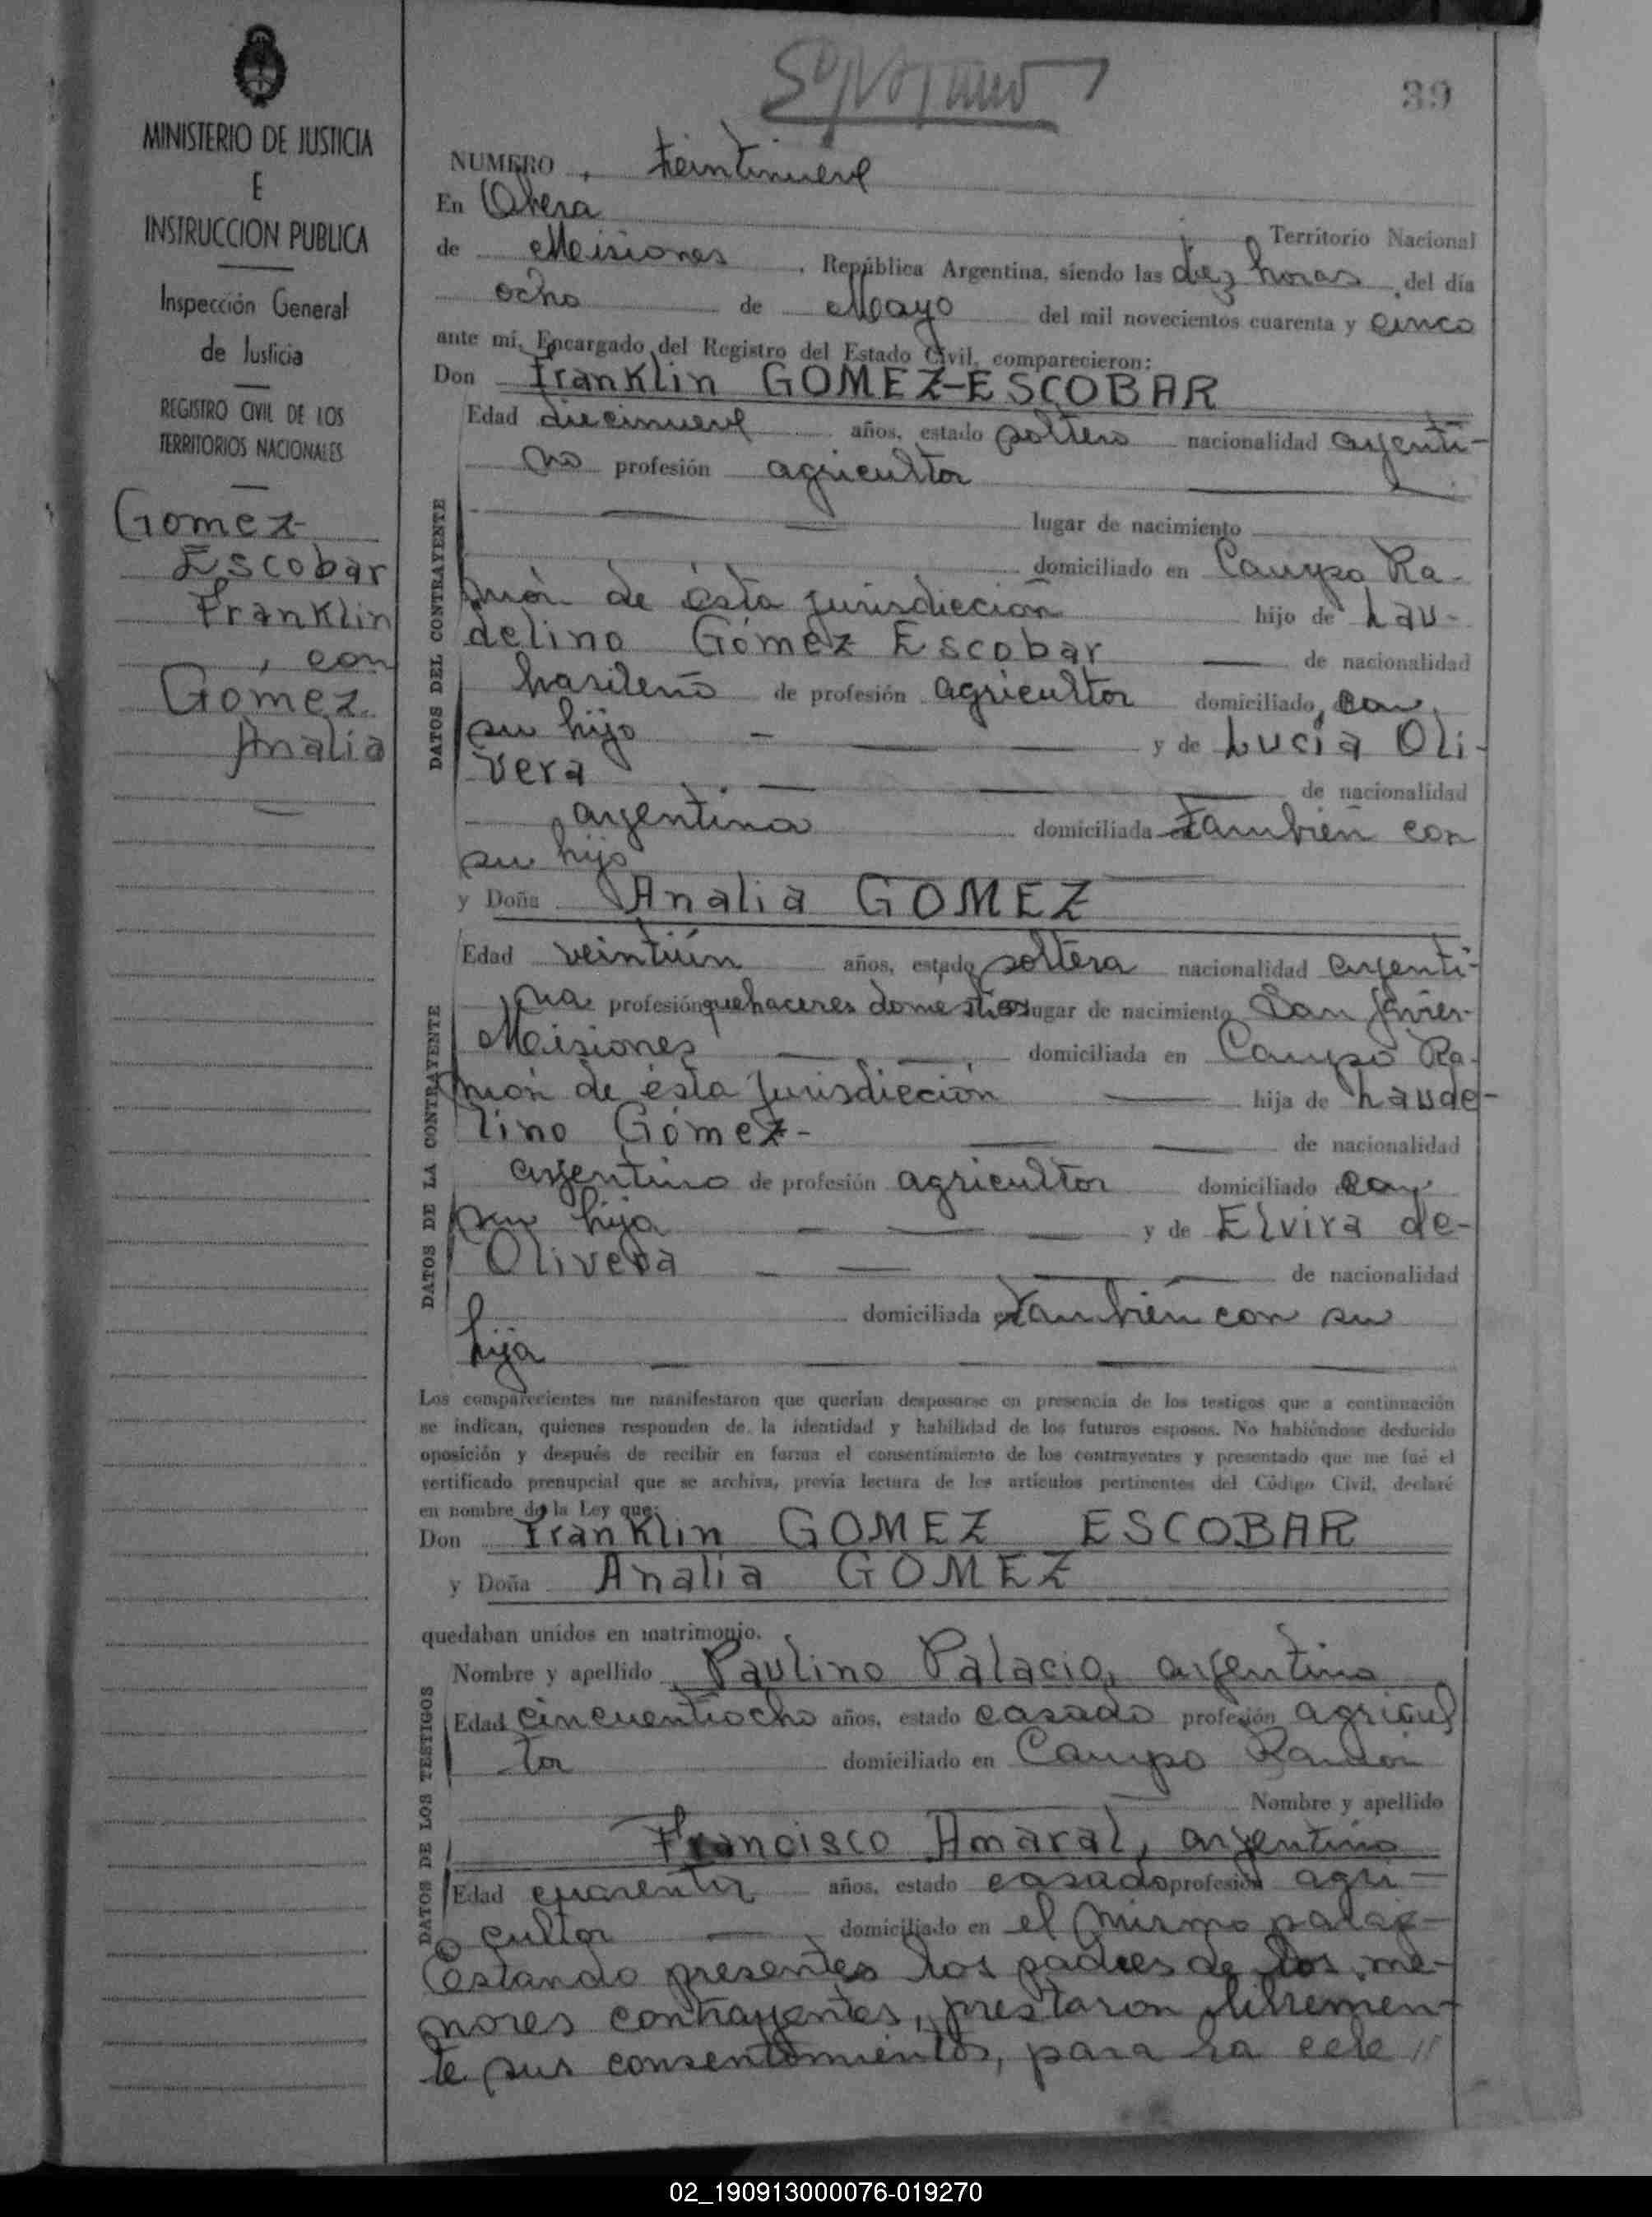 39
MINISTERIO DE JUSTICIA
E
INSTRUCCION PUBLICA
Inspección General
de Justicia
REGISTRO CIVIL DE LOS
TERRITORIOS NACIONALES
Gomez
Escobar
Franklin
, con
Gomez
Analia
NUMERO treintinueve
En Obera Territorio Nacional
de Misiones, República Argentina, siendo las diez horas del día
ocho de Mayo del mil novecientos cuarenta y cinco
ante mí, Encargado del Registro del Estado Civil, comparecieron:
Don Franklin GOMEZ-ESCOBAR
DATOS DEL CONTRAYENTE
Edad diecinueve años, estado soltero nacionalidad argenti-
no profesión agricultor
lugar de nacimiento
domiciliado en Campo Ra-
món de ésta jurisdicción hijo de Lau-
delino Gómez Escobar de nacionalidad
brasileño de profesión agricultor domiciliado con
su hijo y de Lucía Oli-
vera de nacionalidad
argentina domiciliada también con
su hijo
y Doña Analia GOMEZ
DATOS DE LA CONTRAYENTE
Edad veintiún años, estado soltera nacionalidad argenti-
na profesión quehaceres domesticos lugar de nacimiento San Javier-
Misiones domiciliada en Campo Ra-
món de ésta jurisdicción hija de Laude-
lino Gómez- de nacionalidad
argentino de profesión agricultor domiciliado con
su hija y de Elvira de-
Olivera de nacionalidad
domiciliada también con su
hija
Los comparecientes me manifestaron que querían desposarse en presencia de los testigos que a continuación
se indican, quienes responden de la identidad y habilidad de los futuros esposos. No habiéndose deducido
oposición y después de recibir en forma el consentimiento de los contrayentes y presentado que me fué el
certificado prenupcial que se archiva, previa lectura de los artículos pertinentes del Código Civil, declaré
en nombre de la Ley que:
Don Franklin GOMEZ ESCOBAR
y Doña Analia GOMEZ
quedaban unidos en matrimonio.
DATOS DE LOS TESTIGOS
Nombre y apellido Paulino Palacio, argentino
Edad cincuentiocho años, estado casado profesión agricul
tor domiciliado en Campo Ramón
Nombre y apellido
Francisco Amaral, argentino
Edad cuarenta años, estado casado profesión agri-
cultor domiciliado en el mismo
Estando presentes los padres de los me-
nores contrayentes, prestaron libremen-
te sus consentimientos, para la cele //
02_190913000076-019270